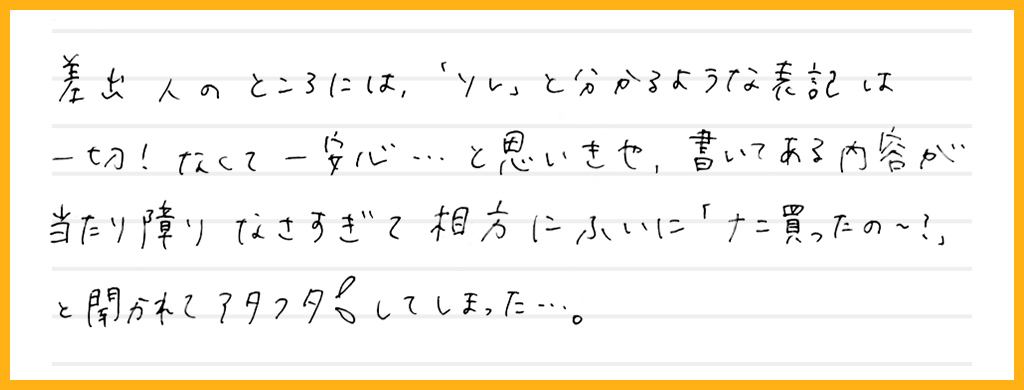 差出人のところには,「ソレ」と分かるような表記は
一切!なくて一安心…と思いきや,書いてある内容が
当たり障りなさすぎて相方にふいに「ナニ買ったの〜!?」
と聞かれてアタフタしてしまった…。